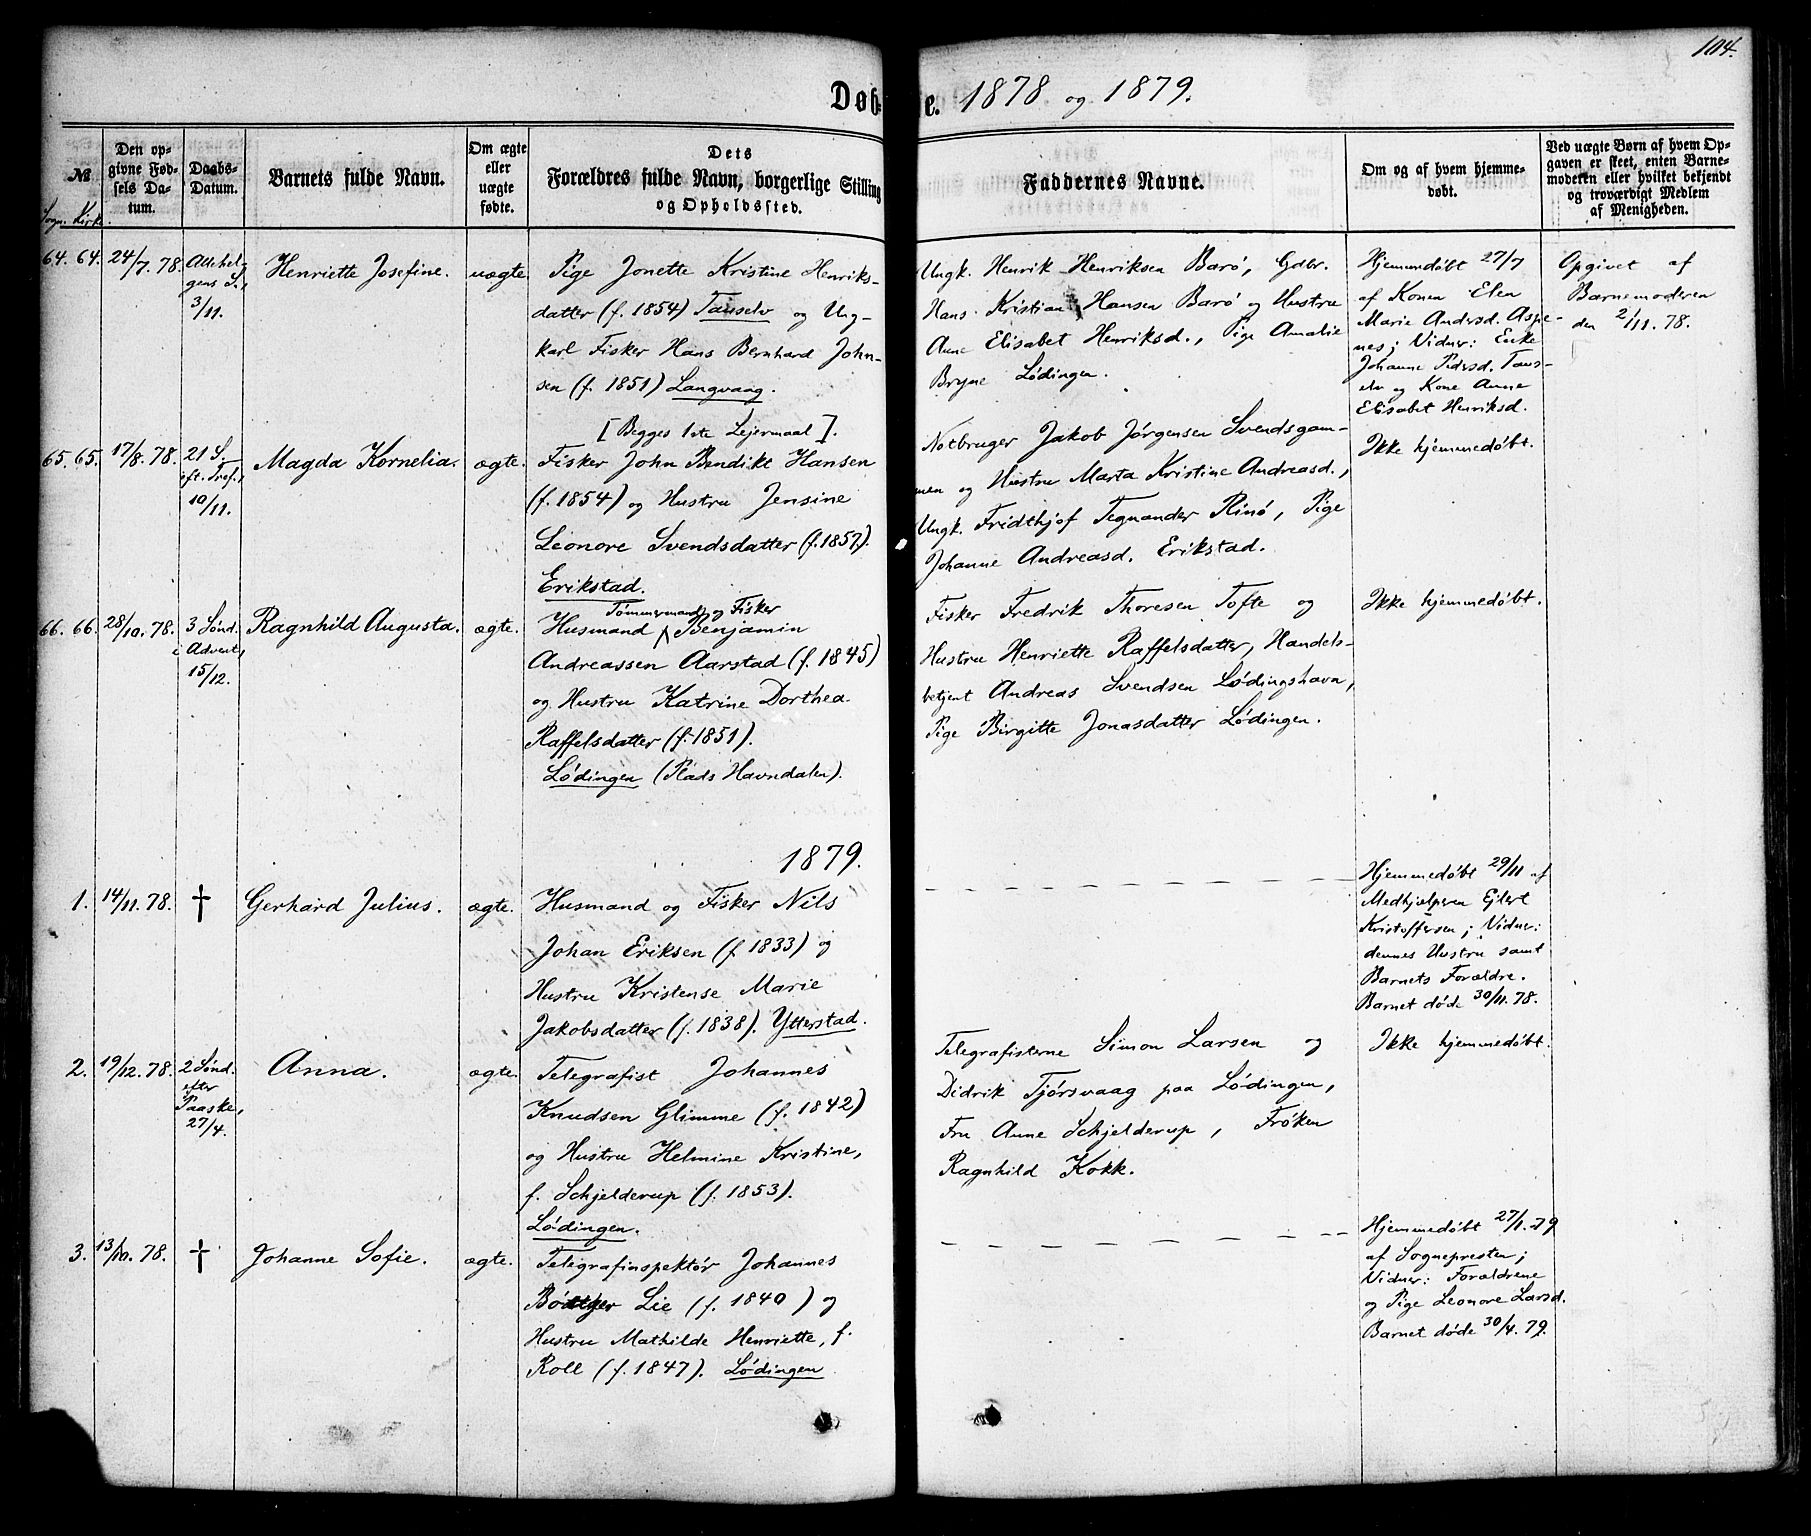 104.
Døb e. 1878 og 1879.
№
Sogn. Kirke.
Den op-
givne Fød-
sels Da-
tum.
Daabs-
Datum.
Barnets fulde Navn.
Om ægte
eller
uægte
fødte.
Dets
Forældres fulde Navn, borgerlige Stilling
og Opholdssted.
Faddernes Navne.
Om og af hvem hjemme-
døbt.
Ved uægte Børn af hvem Op-
gaven er skeet, enten Barne-
moderen eller hvilket bekjendt
og troværdigt Medlem
af Menigheden.
64. 64.
24/7. 78.
Allehel-
gens S.,
3/11.
Henriette Josefine.
uægte.
Pige Jonette Kristine Henriks-
datter (f. 1854) Tanselv og Ung-
karl Fisker Hans Bernhard John-
sen (f. 1851) Langvaag.
[Begges 1ste Lejermaal].
Ungk. Henrik Henriksen Barø, Gdbr.
Hans Kristian Hansen Barø og Hustru
Anne Elisabet Henriksd., Pige Amalie
Bryne Lødingen.
Hjemmedøbt 27/7
af Konen Elen
Marie Andersd. Aspe-
nes; Vidner: Enke
Johanne Pedersd. Tans-
elv og Kone Anne
Elisabet Henriksd.
Opgivet af
Barnemoderen
den 2/11. 78.
65. 65.
17/8. 78.
21 S.
eft. Tref.,
10/11.
Magda Kornelia.
ægte.
Fisker John Bendikt Hansen
(f. 1854) og Hustru Jensine
Leonore Svendsdatter (f. 1857).
Erikstad.
Notbruger Jakob Jørgensen Svendsgam-
men og Hustru Marta Kristine Andreasd.,
Ungk. Fridthjof Tegnander Rinø, Pige
Johanne Andreasd. Erikstad.
Ikke hjemmedøbt.
66. 66.
28/10. 78.
3 Sønd.
i Advent,
15/12.
Ragnhild Augusta.
ægte.
Tømmermand og Fisker
Husmand Benjamin
Andreassen Aarstad (f. 1845)
og Hustru Katrine Dorthea
Raffelsdatter (f. 1851).
Lødingen (Plads Havndalen).
Fisker Fredrik Thoresen Tofte og
Hustru Henriette Raffelsdatter, Handels-
betjent Andreas Svendsen Lødingshavn,
Pige Birgitte Jonasdatter Lødingen.
Ikke hjemmedøbt.
1879.
1.
14/11. 78.
†
Gerhard Julius.
ægte.
Husmand og Fisker Nils
Johan Eriksen (f. 1833) og
Hustru Kristense Marie
Jakobsdatter (f. 1838). Ytterstad.
Hjemmedøbt 29/11 af
Medhjælperen Ejlert
Kristoffersen; Vidner:
dennes Hustru samt
Barnets Forældre.
Barnet døde 30/11. 78.
2.
19/12. 78.
2 Sønd.
efter
Paaske,
27/4.
Anna.
ægte.
Telegrafist Johannes
Knudsen Glimme (f. 1842)
og Hustru Helmine Kristine,
f. Schjelderup (f. 1853).
Lødingen.
Telegrafisterne Simon Larsen og
Didrik Tjørsvaag paa Lødingen,
Fru Anne Schjelderup, Frøken
Ragnhild Kokk.
Ikke hjemmedøbt.
3.
13/10. 78.
†
Johanne Sofie.
ægte.
Telegrafinspektør Johannes
Bøttger Lie (f. 1840) og
Hustru Mathilde Henriette, f.
Roll (f. 1847). Lødingen
Hjemmedøbt 27/1. 79
af Sognepresten;
Vidner: Forældrene
og Pige Leonore Larsd.
Barnet døde 30/4. 79.